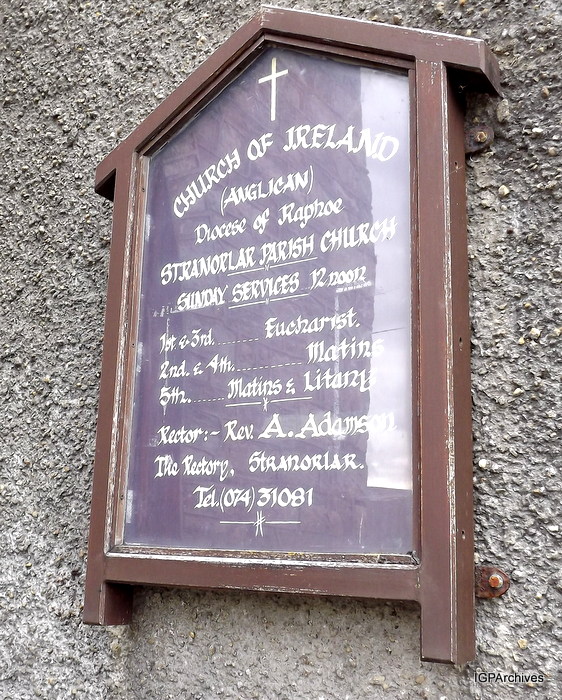 CHURCH OF IRELAND
(ANGLICAN)
Diocese of Raphoe
STRANORLAR PARISH CHURCH
SUNDAY SERVICES 12 noon
1st & 3rd. Eucharist.
2nd. & 4th. Matins
5th. Matins & Litany
Rector:- Rev. A. Adamson
The Rectory, Stranorlar.
Tel.(074) 31081
IGPArchives